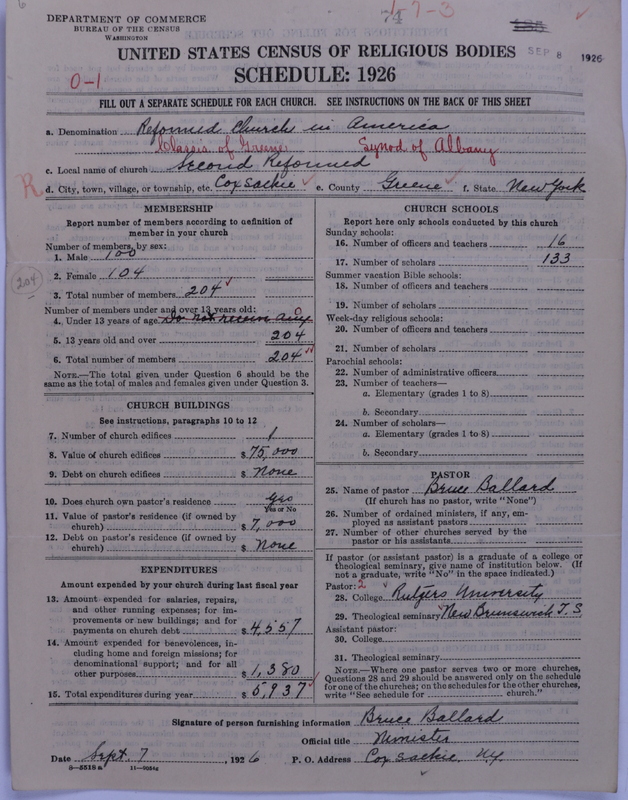 DEPARTMENT OF COMMERCE
BUREAU OF THE CENSUS
WASHINGTON
74
17-3
SEP 8 1926
UNITED STATES CENSUS OF RELIGIOUS BODIES
SCHEDULE: 1926
0-1
FILL OUT A SEPARATE SCHEDULE FOR EACH CHURCH. SEE INSTRUCTIONS ON THE BACK OF THIS SHEET
a. Denomination Reformed Church in America
Classis of Greene Synod of Albany
c. Local name of church Second Reformed
R
d. City, town, village, or township, etc. Coxsackie e. County Greene f. State New York
MEMBERSHIP
Report number of members according to definition of
member in your church
Number of members, by sex:
1. Male 100
2. Female 104
204
3. Total number of members 204
Number of members under and over 13 years old:
4. Under 13 years of age Do not receive any 0
5. 13 years old and over 204
6. Total number of members 204
NOTE.—The total given under Question 6 should be the
same as the total of males and females given under Question 3.
CHURCH BUILDINGS
See instructions, paragraphs 10 to 12
7. Number of church edifices 1
8. Value of church edifices $ 75,000
9. Debt on church edifices $ None
10. Does church own pastor's residence yes
Yes or No
11. Value of pastor's residence (if owned by
church) $ 7,000
12. Debt on pastor's residence (if owned by
church) $ None
EXPENDITURES
Amount expended by your church during last fiscal year
13. Amount expended for salaries, repairs,
and other running expenses; for im-
provements or new buildings; and for
payments on church debt $ 4,557
14. Amount expended for benevolences, in-
cluding home and foreign missions; for
denominational support; and for all
other purposes $ 1,380
15. Total expenditures during year $ 5,937
CHURCH SCHOOLS
Report here only schools conducted by this church
Sunday schools:
16. Number of officers and teachers 16
17. Number of scholars 133
Summer vacation Bible schools:
18. Number of officers and teachers
19. Number of scholars
Week-day religious schools:
20. Number of officers and teachers
21. Number of scholars
Parochial schools:
22. Number of administrative officers
23. Number of teachers—
a. Elementary (grades 1 to 8)
b. Secondary
24. Number of scholars—
a. Elementary (grades 1 to 8)
b. Secondary
PASTOR
25. Name of pastor Bruce Ballard
(If church has no pastor, write "None")
26. Number of ordained ministers, if any, em-
ployed as assistant pastors
27. Number of other churches served by the
pastor or his assistants
If pastor (or assistant pastor) is a graduate of a college or
theological seminary, give name of institution below. (If
not a graduate, write "No" in the space indicated.)
Pastor: 2
28. College Rutgers University
29. Theological seminary New Brunswick T. S
Assistant pastor:
30. College
31. Theological seminary
NOTE.—Where one pastor serves two or more churches,
Questions 28 and 29 should be answered only on the schedule
for one of the churches; on the schedules for the other churches,
write "See schedule for church."
Signature of person furnishing information Bruce Ballard
Official title Minister
Date Sept. 7, 1926 P. O. Address Coxsackie N.Y.
8—5518 a 11—9054g